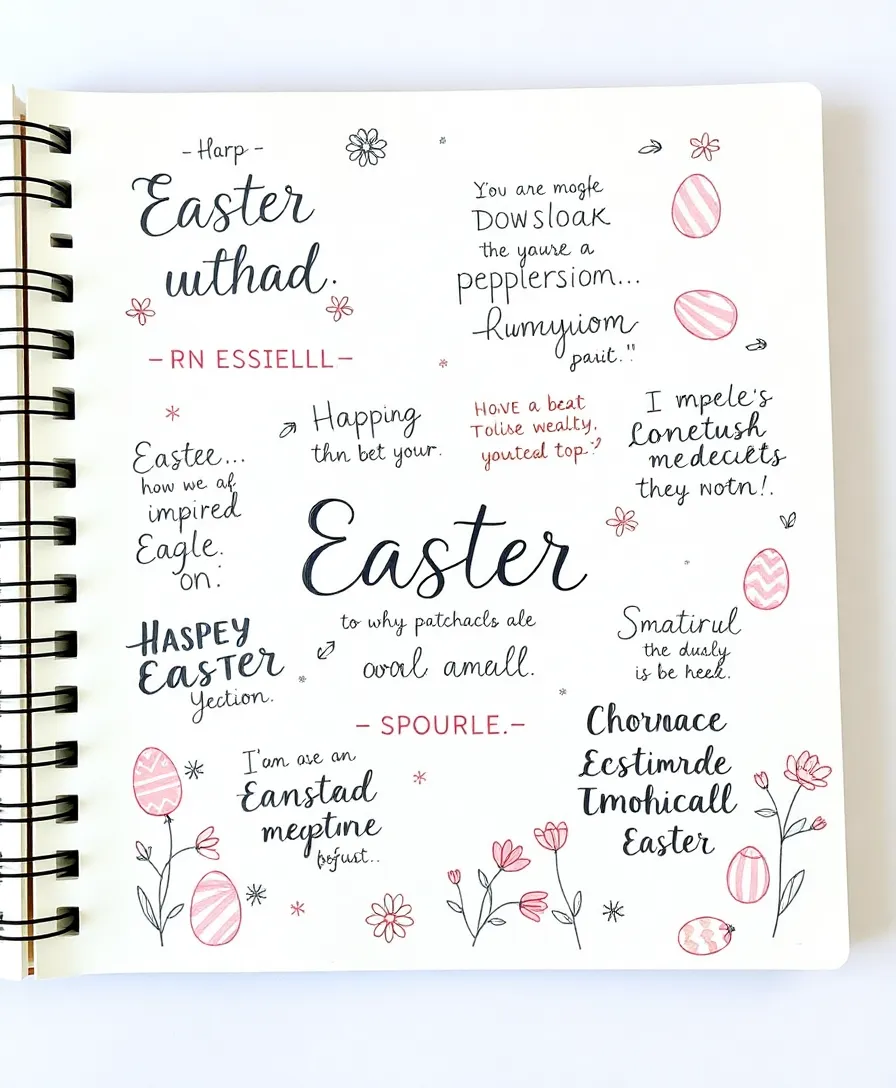 - Harp -
Easter
uthad.
- RN ESSIELLL -
You are mogfe
DOWSLOAK
the yaure a
pepplersiom...
Rumyuiom
parit."
Happing
thn bet your.
HOVE a beat
Tolise wealty.
youteal top:
I mpele's
Conetush
medecists
they notn!.
Eastee...
how we af
impired
Eagle.
on:
Easter
to why patchacls ale
oval amall.
HASPEY
EASTER
Yection.
Smatirul
the dualy
is be heek.
- SPOURLE. -
Chornace
Ecstimrde
Tmohicall
Easter
I'am ase an
Eanstad
meyptine
befust..